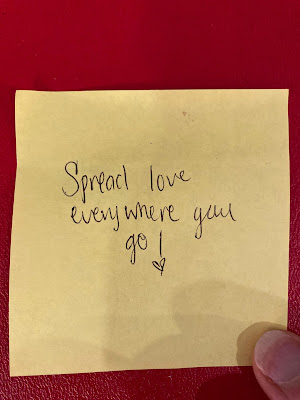 Spread love
everywhere you
go!